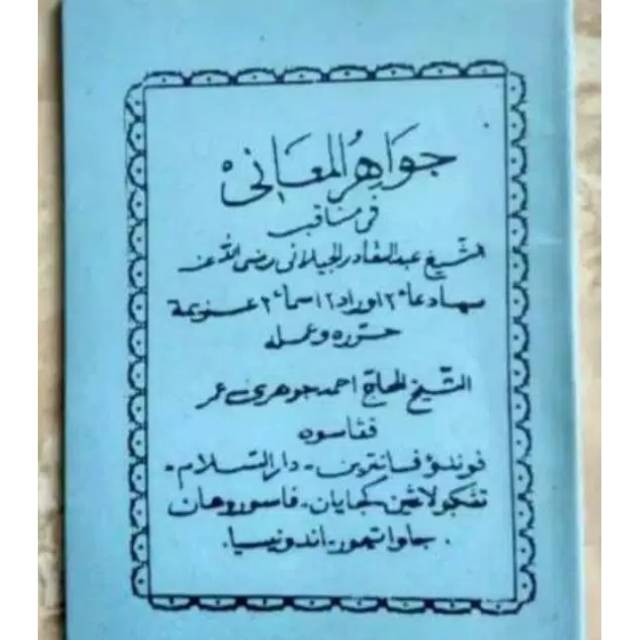 جواهر المعاني
في مناقب
الشيخ عبد القادر الجيلاني رضي الله عنه
سهادعا٢ اوراد٢ اسما٢ عزيمة
حرره وعمله
الشيخ الحاج احمد جوهري عمر
ڤڠاسوه
ڤوندؤ ڤسانترين - دار السلام -
تڠكولاڠين كجايان - ڤاسوروهان
جاوا تيمور - اندونيسيا.